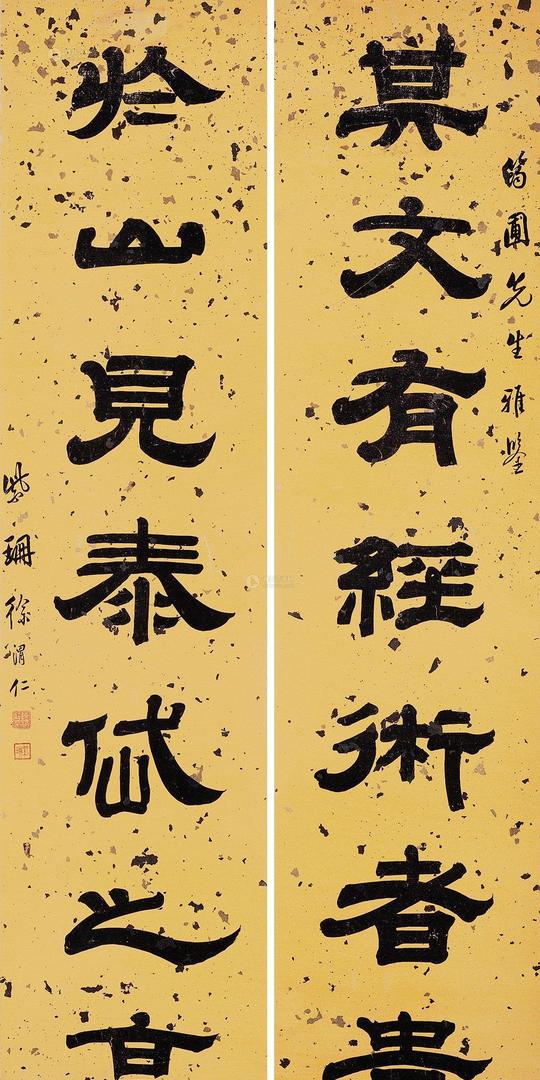 筠圃先生雅鑒
其文有經術者貴
於山見泰岱之高
紫珊徐渭仁